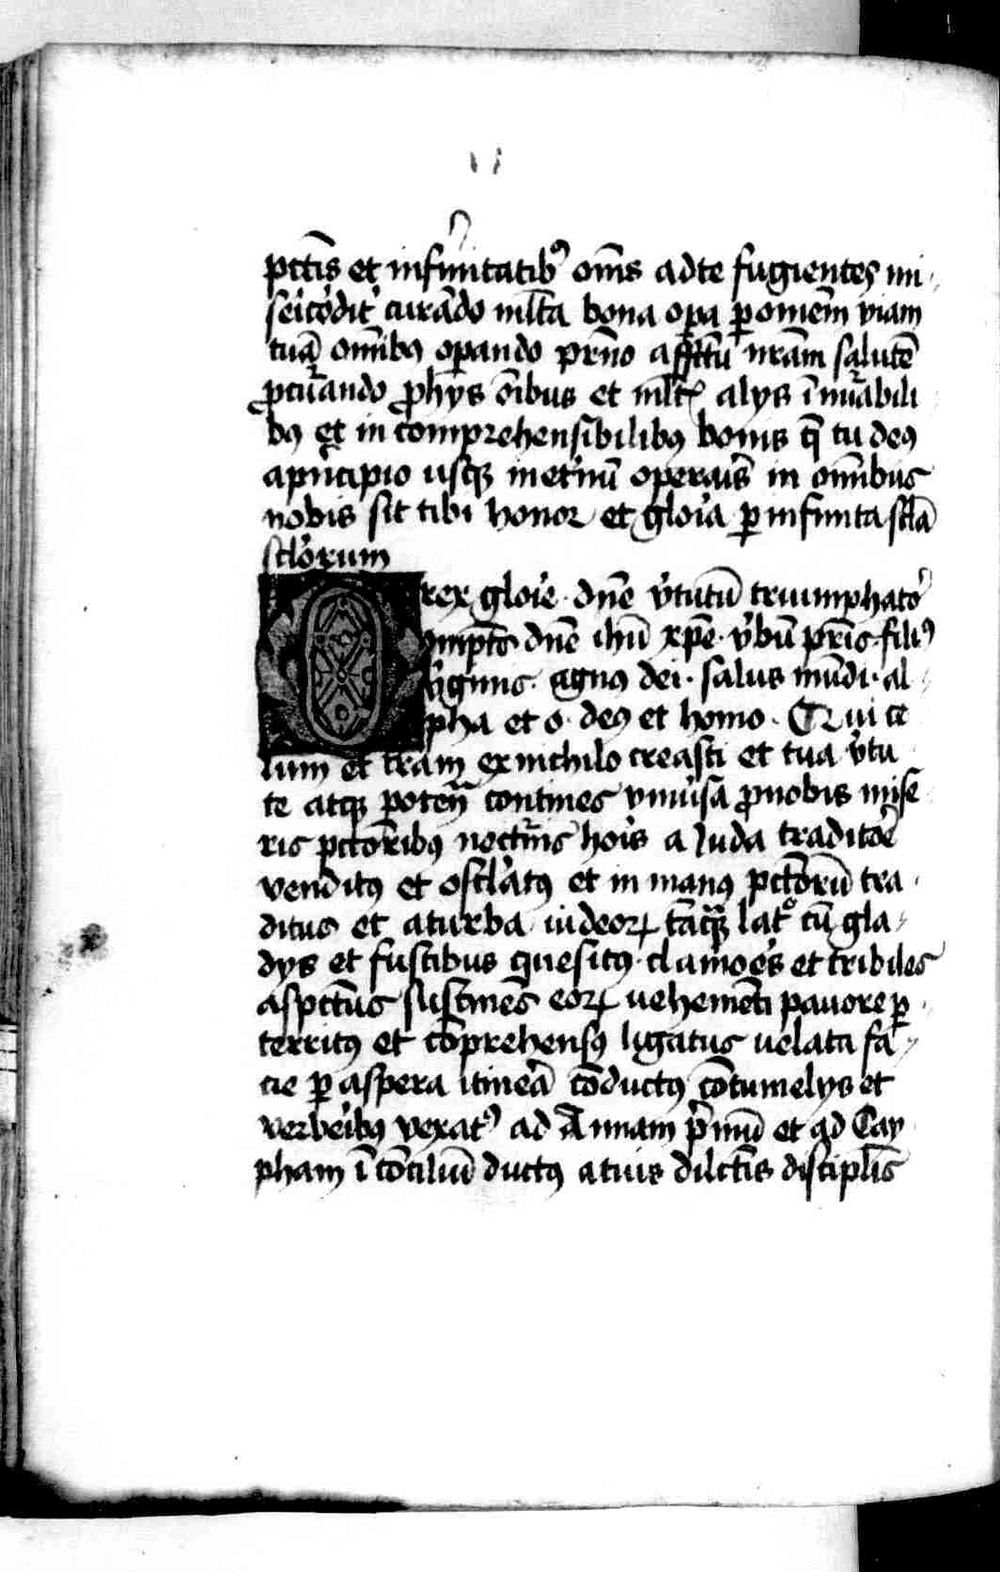 pctīs et infirmitatibꝰ om̄s ad te fugientes mi
sericorditer curādo ml̄ta bona oꝑa ꝑ omnem viam
tuā omnibꝫ oꝑando pr̄no affctū nr̄am salutē
ꝓcurando ꝓphijs om̄ibus et ml̄tis alijs īnumabili
bꝫ et in comprehensibilibꝫ bonis q̄ tu deꝰ
a principio usqꝫ in eternū operaris in omnibus
nobis sit tibi honor et gloria ꝑ infinita scl̄a
sclorum
O rex glorie · dn̄e virtutū triumphator
omnip̄ts dn̄e ihū xp̄e · verbū pr̄is · filiꝰ
virginis · agnꝰ dei · salus mūdi · al
pha et o · deꝰ et homo · Qui ce
lum et terram ex nichilo creasti et tua virtu
te atqꝫ potenti contines vniuersa ꝓ nobis mise
ris pctōribꝫ nocturnis horis a Iuda traditore
venditꝰ et osclatꝰ et in manꝰ pctōrū tra
ditus et a turba iudeoꝝ tāqꝫ latro cū gla
dijs et fustibus quesitꝰ · clamores et tribiles
aspctus sustinēs eoꝝ uehemēti pauore ꝑ
territꝰ et cōprehensꝰ ligatus uelata fa
cie ꝑ aspera itinera cōductꝰ cōtumelijs et
verberibꝫ vexatꝰ ad Annam primū et ad Cay
pham ī cōciliū ductꝰ a tuis dilctīs disciplīs